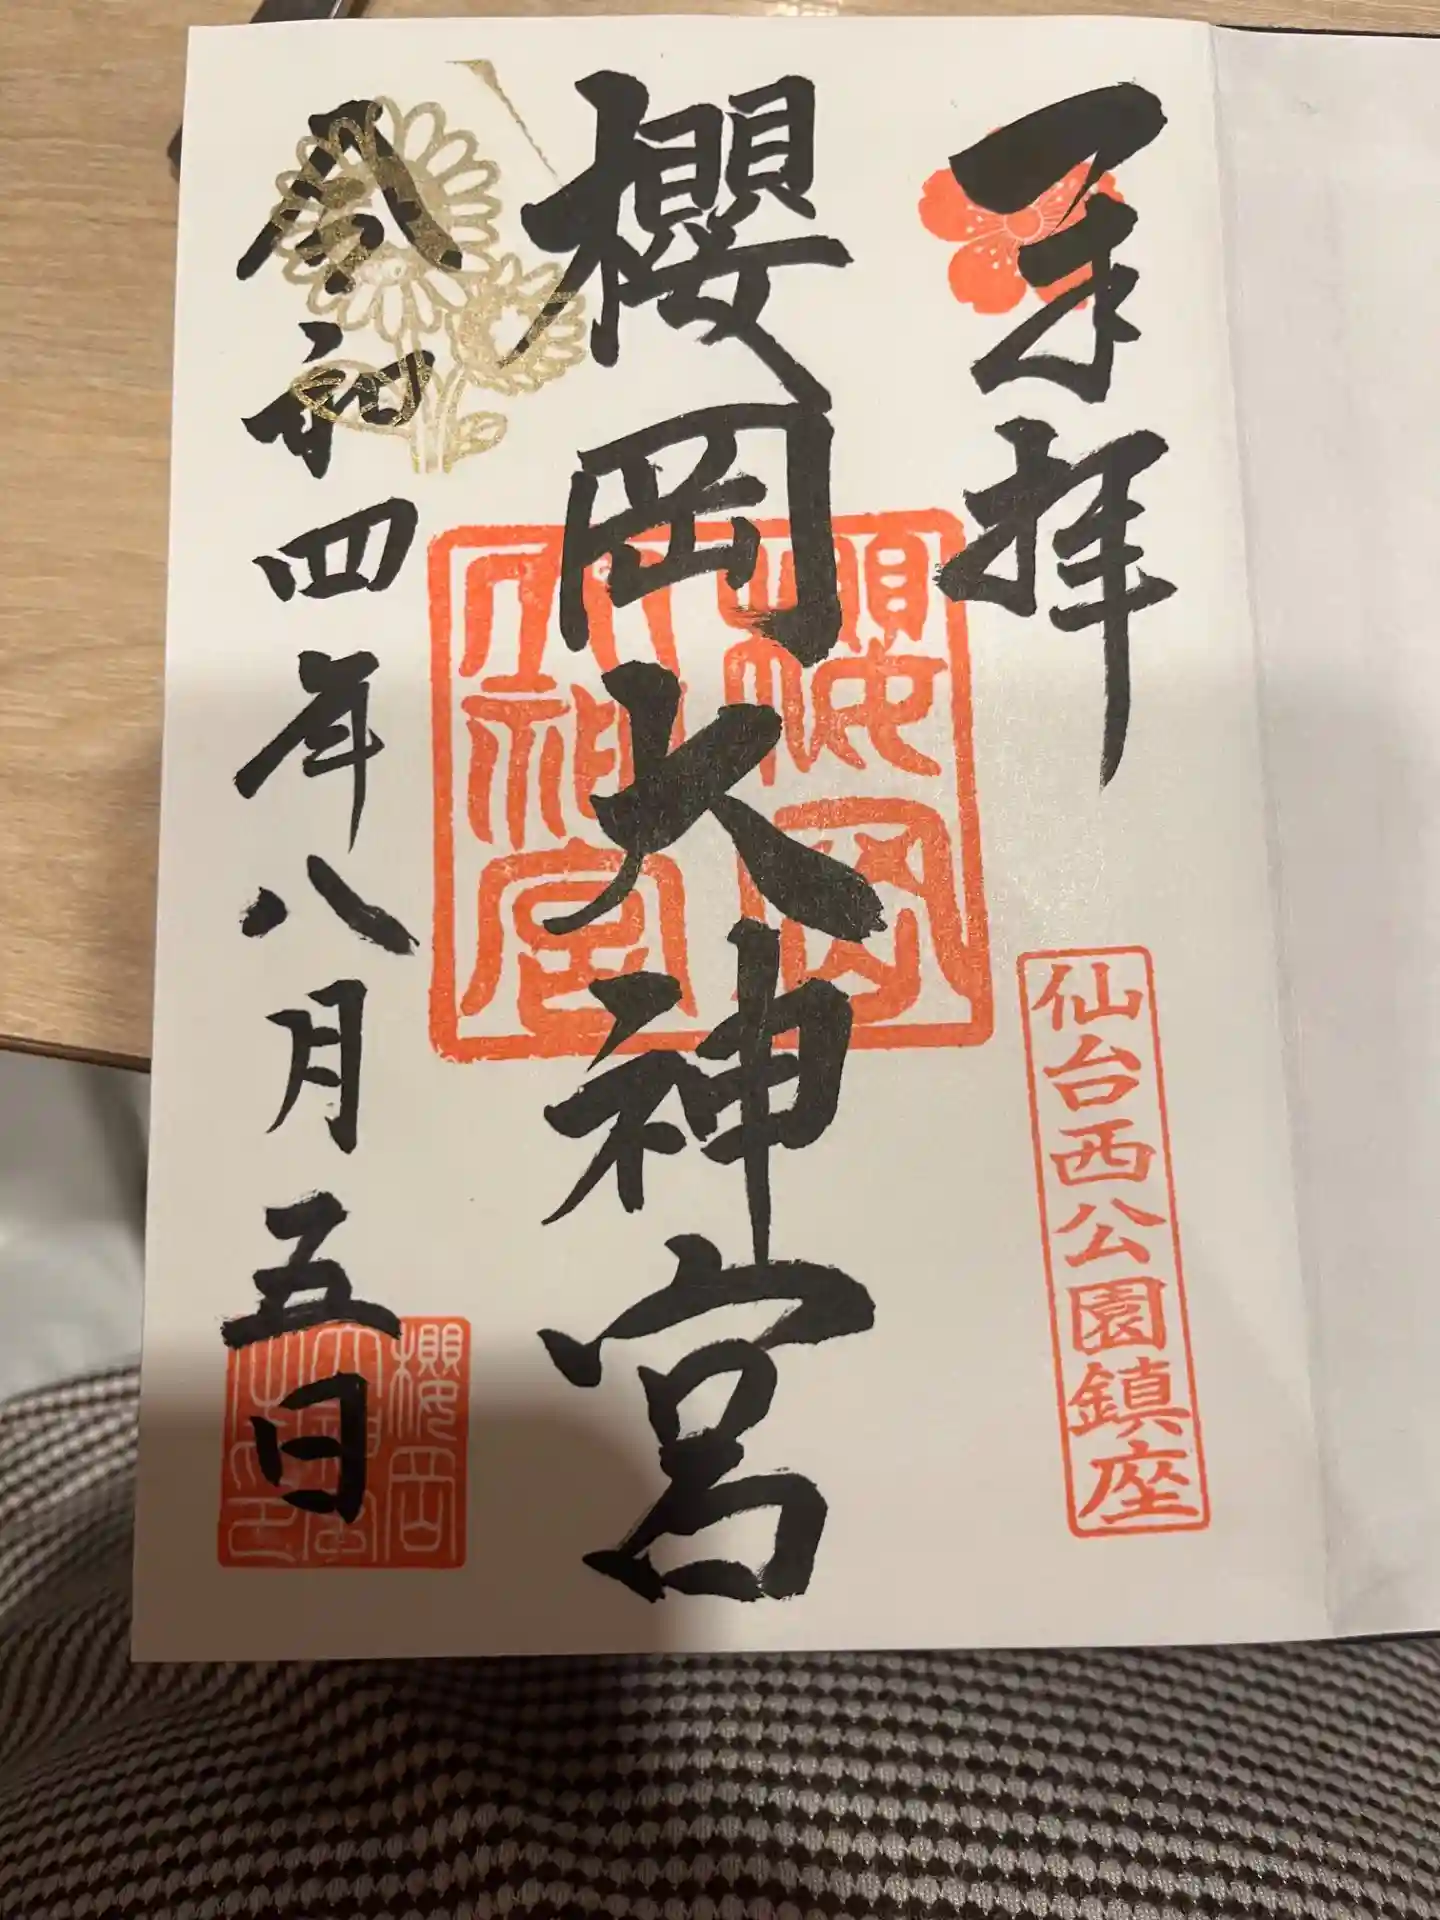 奉拝
仙台西公園鎮座
櫻岡大神宮
櫻岡
大神宮
令和四年八月五日
櫻岡